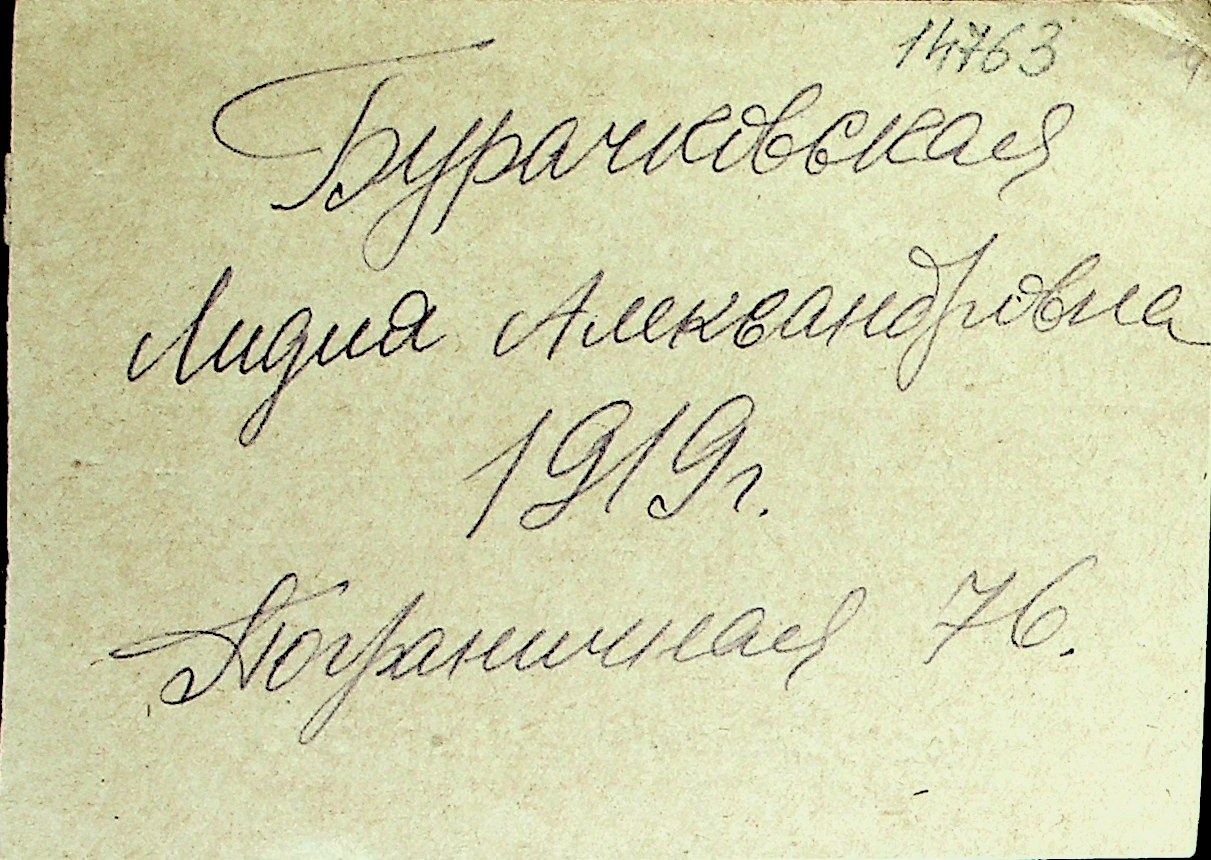 14763
Бурачковская
Лидия Александровна
1919г.
Пограничная 76.